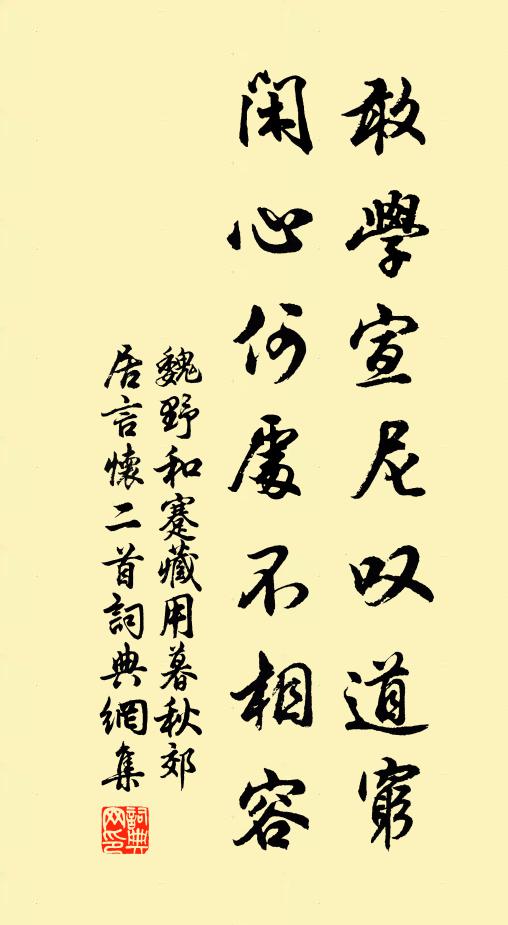 敢學宣尼叹道窮
閑心何處不相容
魏野和蹇藏用暮秋郊
居言懷二首詞典網集
詞典
网印